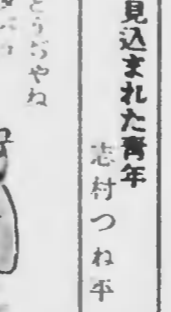 見込まれた青年
志村つね平
どうぢやね